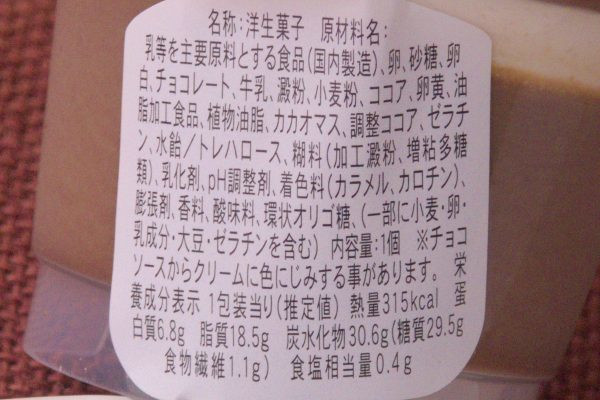 名称:洋生菓子 原材料名:
乳等を主要原料とする食品(国内製造)、卵、砂糖、卵
白、チョコレート、牛乳、澱粉、小麦粉、ココア、卵黄、油
脂加工食品、植物油脂、カカオマス、調整ココア、ゼラチ
ン、水飴/トレハロース、糊料(加工澱粉、増粘多糖
類)、乳化剤、pH調整剤、着色料(カラメル、カロチン)、
膨張剤、香料、酸味料、環状オリゴ糖、(一部に小麦・卵・
乳成分・大豆・ゼラチンを含む) 内容量:1個 ※チョコ
ソースからクリームに色にじみする事があります。 栄
養成分表示 1包装当り(推定値) 熱量315kcal 蛋
白質6.8g 脂質18.5g 炭水化物30.6g(糖質29.5g
食物繊維1.1g) 食塩相当量0.4g